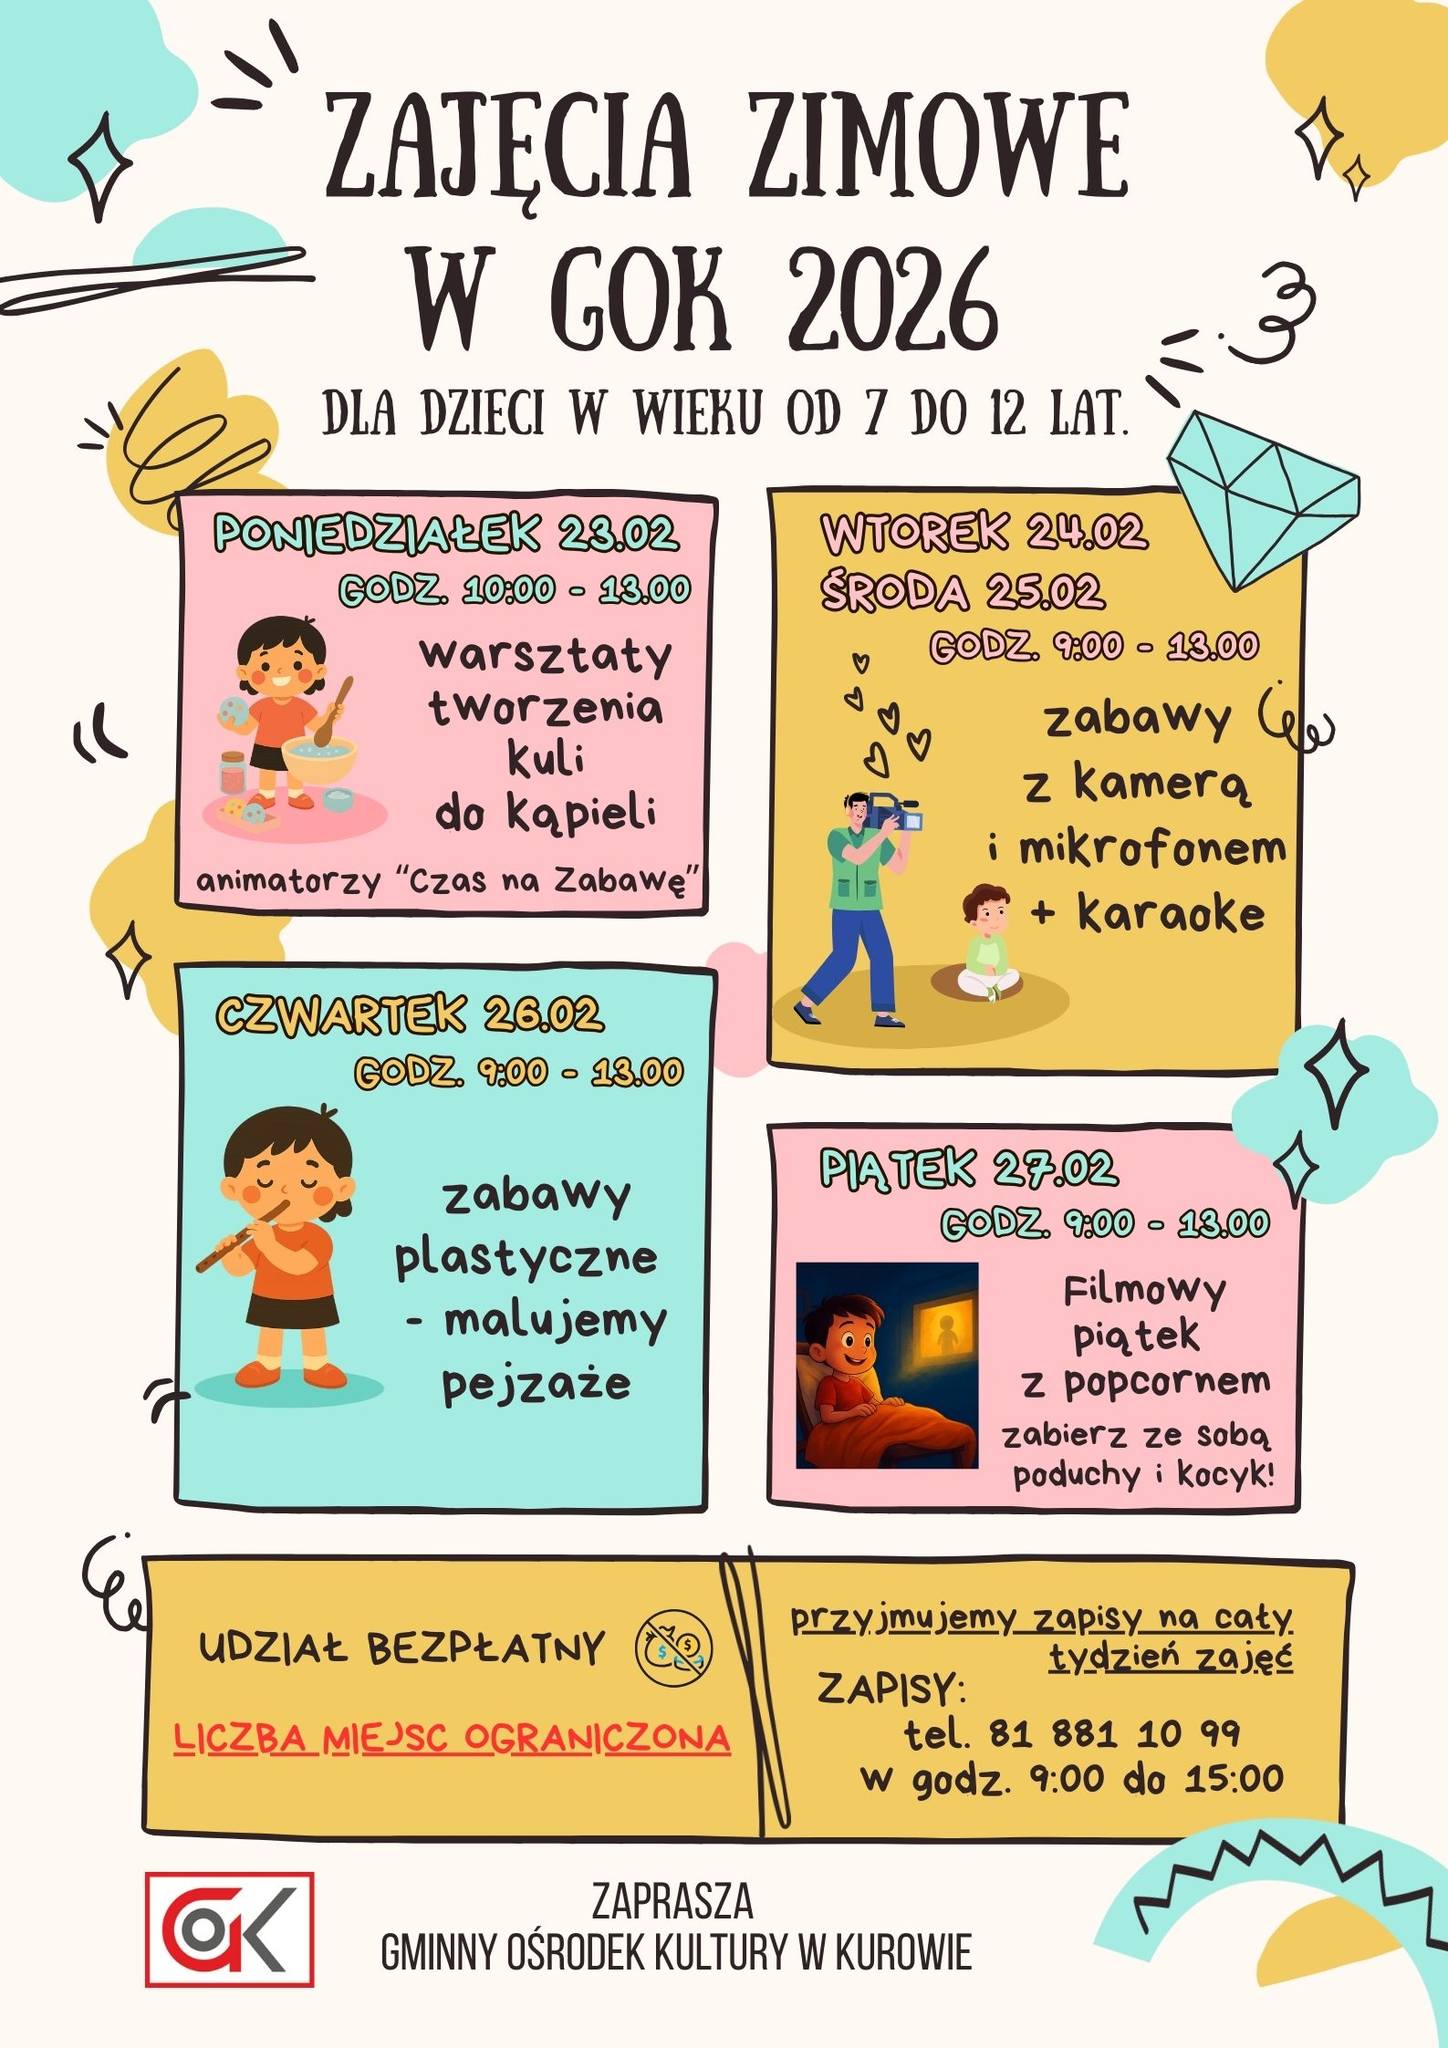 ZAJĘCIA ZIMOWE
W GOK 2026
DLA DZIECI W WIEKU OD 7 DO 12 LAT.
PONIEDZIAŁEK 23.02
GODZ. 10:00 - 13.00
warsztaty
tworzenia
kuli
do kąpieli
animatorzy "Czas na Zabawę"
WTOREK 24.02
ŚRODA 25.02
GODZ. 9:00 - 13.00
zabawy
z kamerą
i mikrofonem
+ karaoke
CZWARTEK 26.02
GODZ. 9:00 - 13.00
zabawy
plastyczne
- malujemy
pejzaże
PIĄTEK 27.02
GODZ. 9:00 - 13.00
Filmowy
piątek
z popcornem
zabierz ze sobą
poduchy i kocyk!
UDZIAŁ BEZPŁATNY
LICZBA MIEJSC OGRANICZONA
przyjmujemy zapisy na cały
tydzień zajęć
ZAPISY:
tel. 81 881 10 99
w godz. 9:00 do 15:00
GOK
ZAPRASZA
GMINNY OŚRODEK KULTURY W KUROWIE